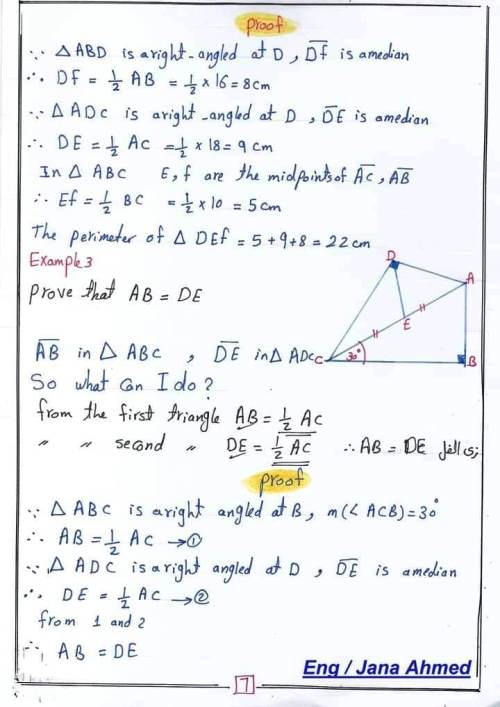 proof
∵ △ ABD is a right-angled at D , D̅f̅ is a median
∴ Df = 1/2 AB = 1/2 × 16 = 8 cm
∵ △ ADC is a right-angled at D , D̅E̅ is a median
∴ DE = 1/2 AC = 1/2 × 18 = 9 cm
In △ ABC E, f are the midpoints of A̅C̅ , A̅B̅
∴ Ef = 1/2 BC = 1/2 × 10 = 5 cm
The perimeter of △ DEf = 5 + 9 + 8 = 22 cm
Example 3
prove that AB = DE
D
A
E
C
30°
B
A̅B̅ in △ ABC , D̅E̅ in △ ADC
So what can I do ?
from the first triangle AB = 1/2 AC
〃 〃 second 〃 DE = 1/2 AC ∴ AB = DE زى الفل
proof
∵ △ ABC is a right angled at B, m(< ACB) = 30°
∴ AB = 1/2 AC → ①
∵ △ ADC is a right angled at D , D̅E̅ is a median
∴ DE = 1/2 AC → ②
from 1 and 2
∴ AB = DE
Eng / Jana Ahmed
7